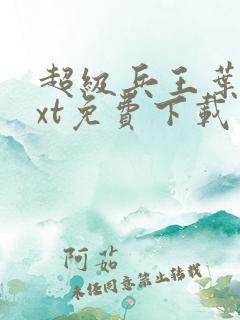 超级兵王葉
xt免費下載
阿茹
未经同意禁止转载